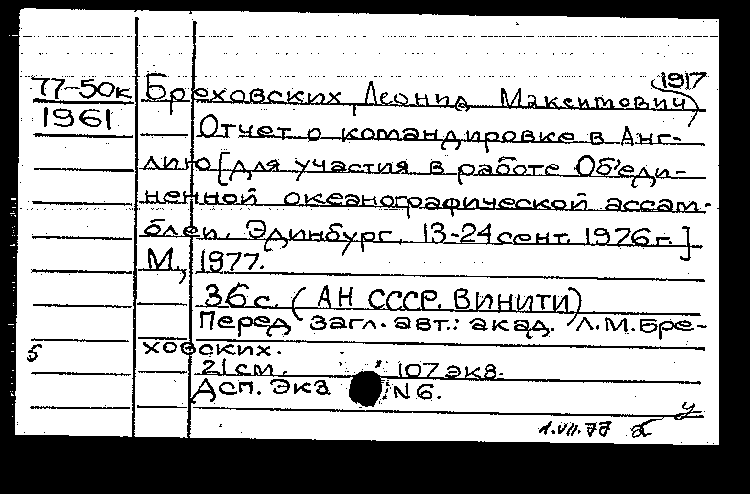 1917
77-50к Бреховских, Леонид Максимович
1961 Отчет о командировке в Анг-
лию [для участия в работе Объеди-
ненной океанографической ассам-
блеи, Эдинбург, 13-24 сент. 1976 г.]
М., 1977.
36 с. (АН СССР. ВИНИТИ)
Перед загл. авт.: акад. Л.М. Бре-
ховских.
21 см. 107 экз.
Дсп. Экз N 6.
1.VII.77